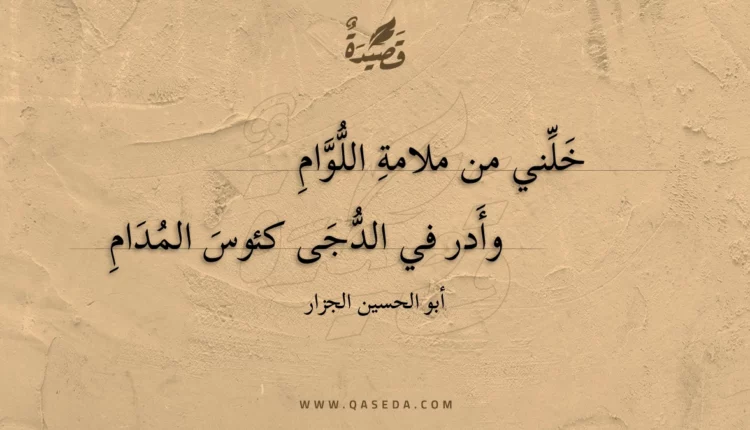 قَصِيدَةٌ
خَلِّني من ملامةِ اللُّوَّامِ
وأَدر في الدُّجَى كئوسَ المُدَامِ
أبو الحسين الجزار
WWW.QASEDA.COM